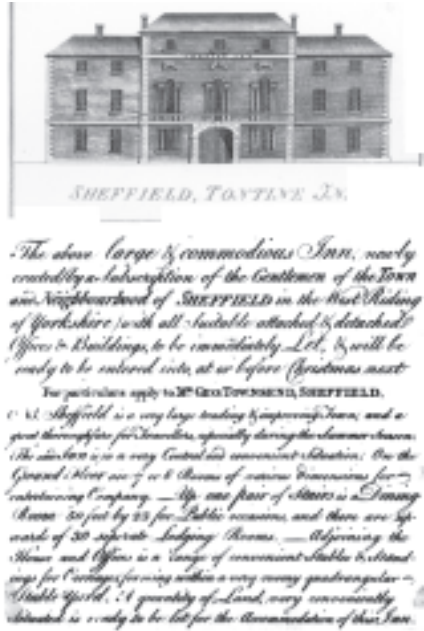 SHEFFIELD, TONTINE IN.
The above large & commodious Inn, newly
erected by a Subscription of the Gentlemen of the Town
and Neighbourhood of SHEFFIELD in the West Riding
of Yorkshire, with all Suitable attached & detached
Offices & Buildings, to be immediately Let, & will be
ready to be entered into, at or before Christmas next
For particulars apply to Mr. GEO. TOWNSEND, SHEFFIELD.
Sheffield is a very large trading & improving Town, and a
great thoroughfare for Travellers, especially during the Summer Season.
The Inn is in a very Central and convenient Situation; On the
Ground Floor are 7 or 8 Rooms of various Dimensions for
entertaining Company. — Up one pair of Stairs is a Dining
Room 50 feet by 25 for Public occasions, and there are up-
wards of 30 separate Lodging Rooms. — Adjoining the
House and Offices is a range of convenient Stables & Stand-
ings for Carriages, forming within a very roomy quadrangular
Stable Yard. A quantity of Land, very conveniently
Situated is ready to be let for the Accommodation of this Inn.